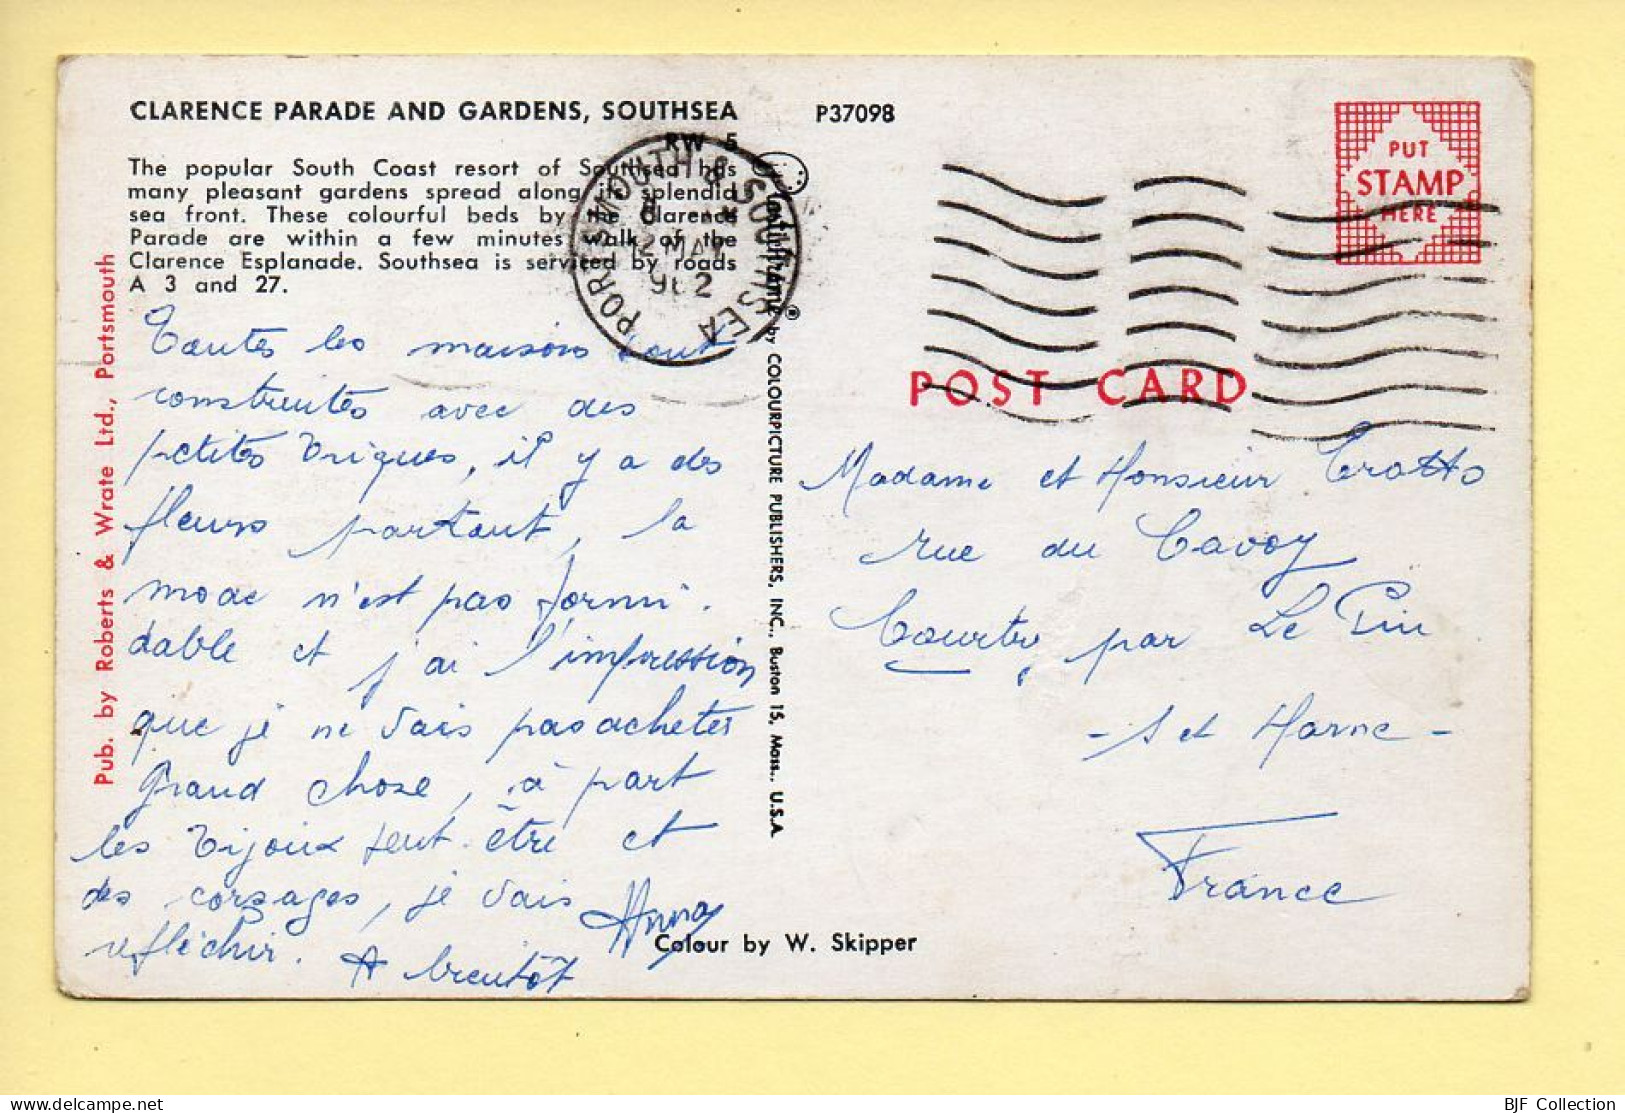 CLARENCE PARADE AND GARDENS, SOUTHSEA
P37098
RW 5
The popular South Coast resort of Southsea has
many pleasant gardens spread along its splendid
sea front. These colourful beds by the Clarence
Parade are within a few minutes walk of the
Clarence Esplanade. Southsea is serviced by roads
A 3 and 27.
PORTSMOUTH & SOUTHSEA
12 MAY
962
PUT
STAMP
HERE
POST CARD
Pub. by Roberts & Wrate Ltd., Portsmouth
Plastichrome® by COLOURPICTURE PUBLISHERS, INC., Boston 15, Mass., U.S.A.
Toutes les maisons sont
construites avec des
petites briques, il y a des
fleurs partout, la
mode n'est pas formi-
dable et j'ai l'impression
que je ne vais pas acheter
grand chose, à part
les bijoux peut-être et
des corsages, je vais
réfléchir. A bientôt
Anna
Madame et Monsieur Trotto
rue du Cavoy
Courtry, par Le Pin
- S et Marne -
France
Colour by W. Skipper
BJF Collection